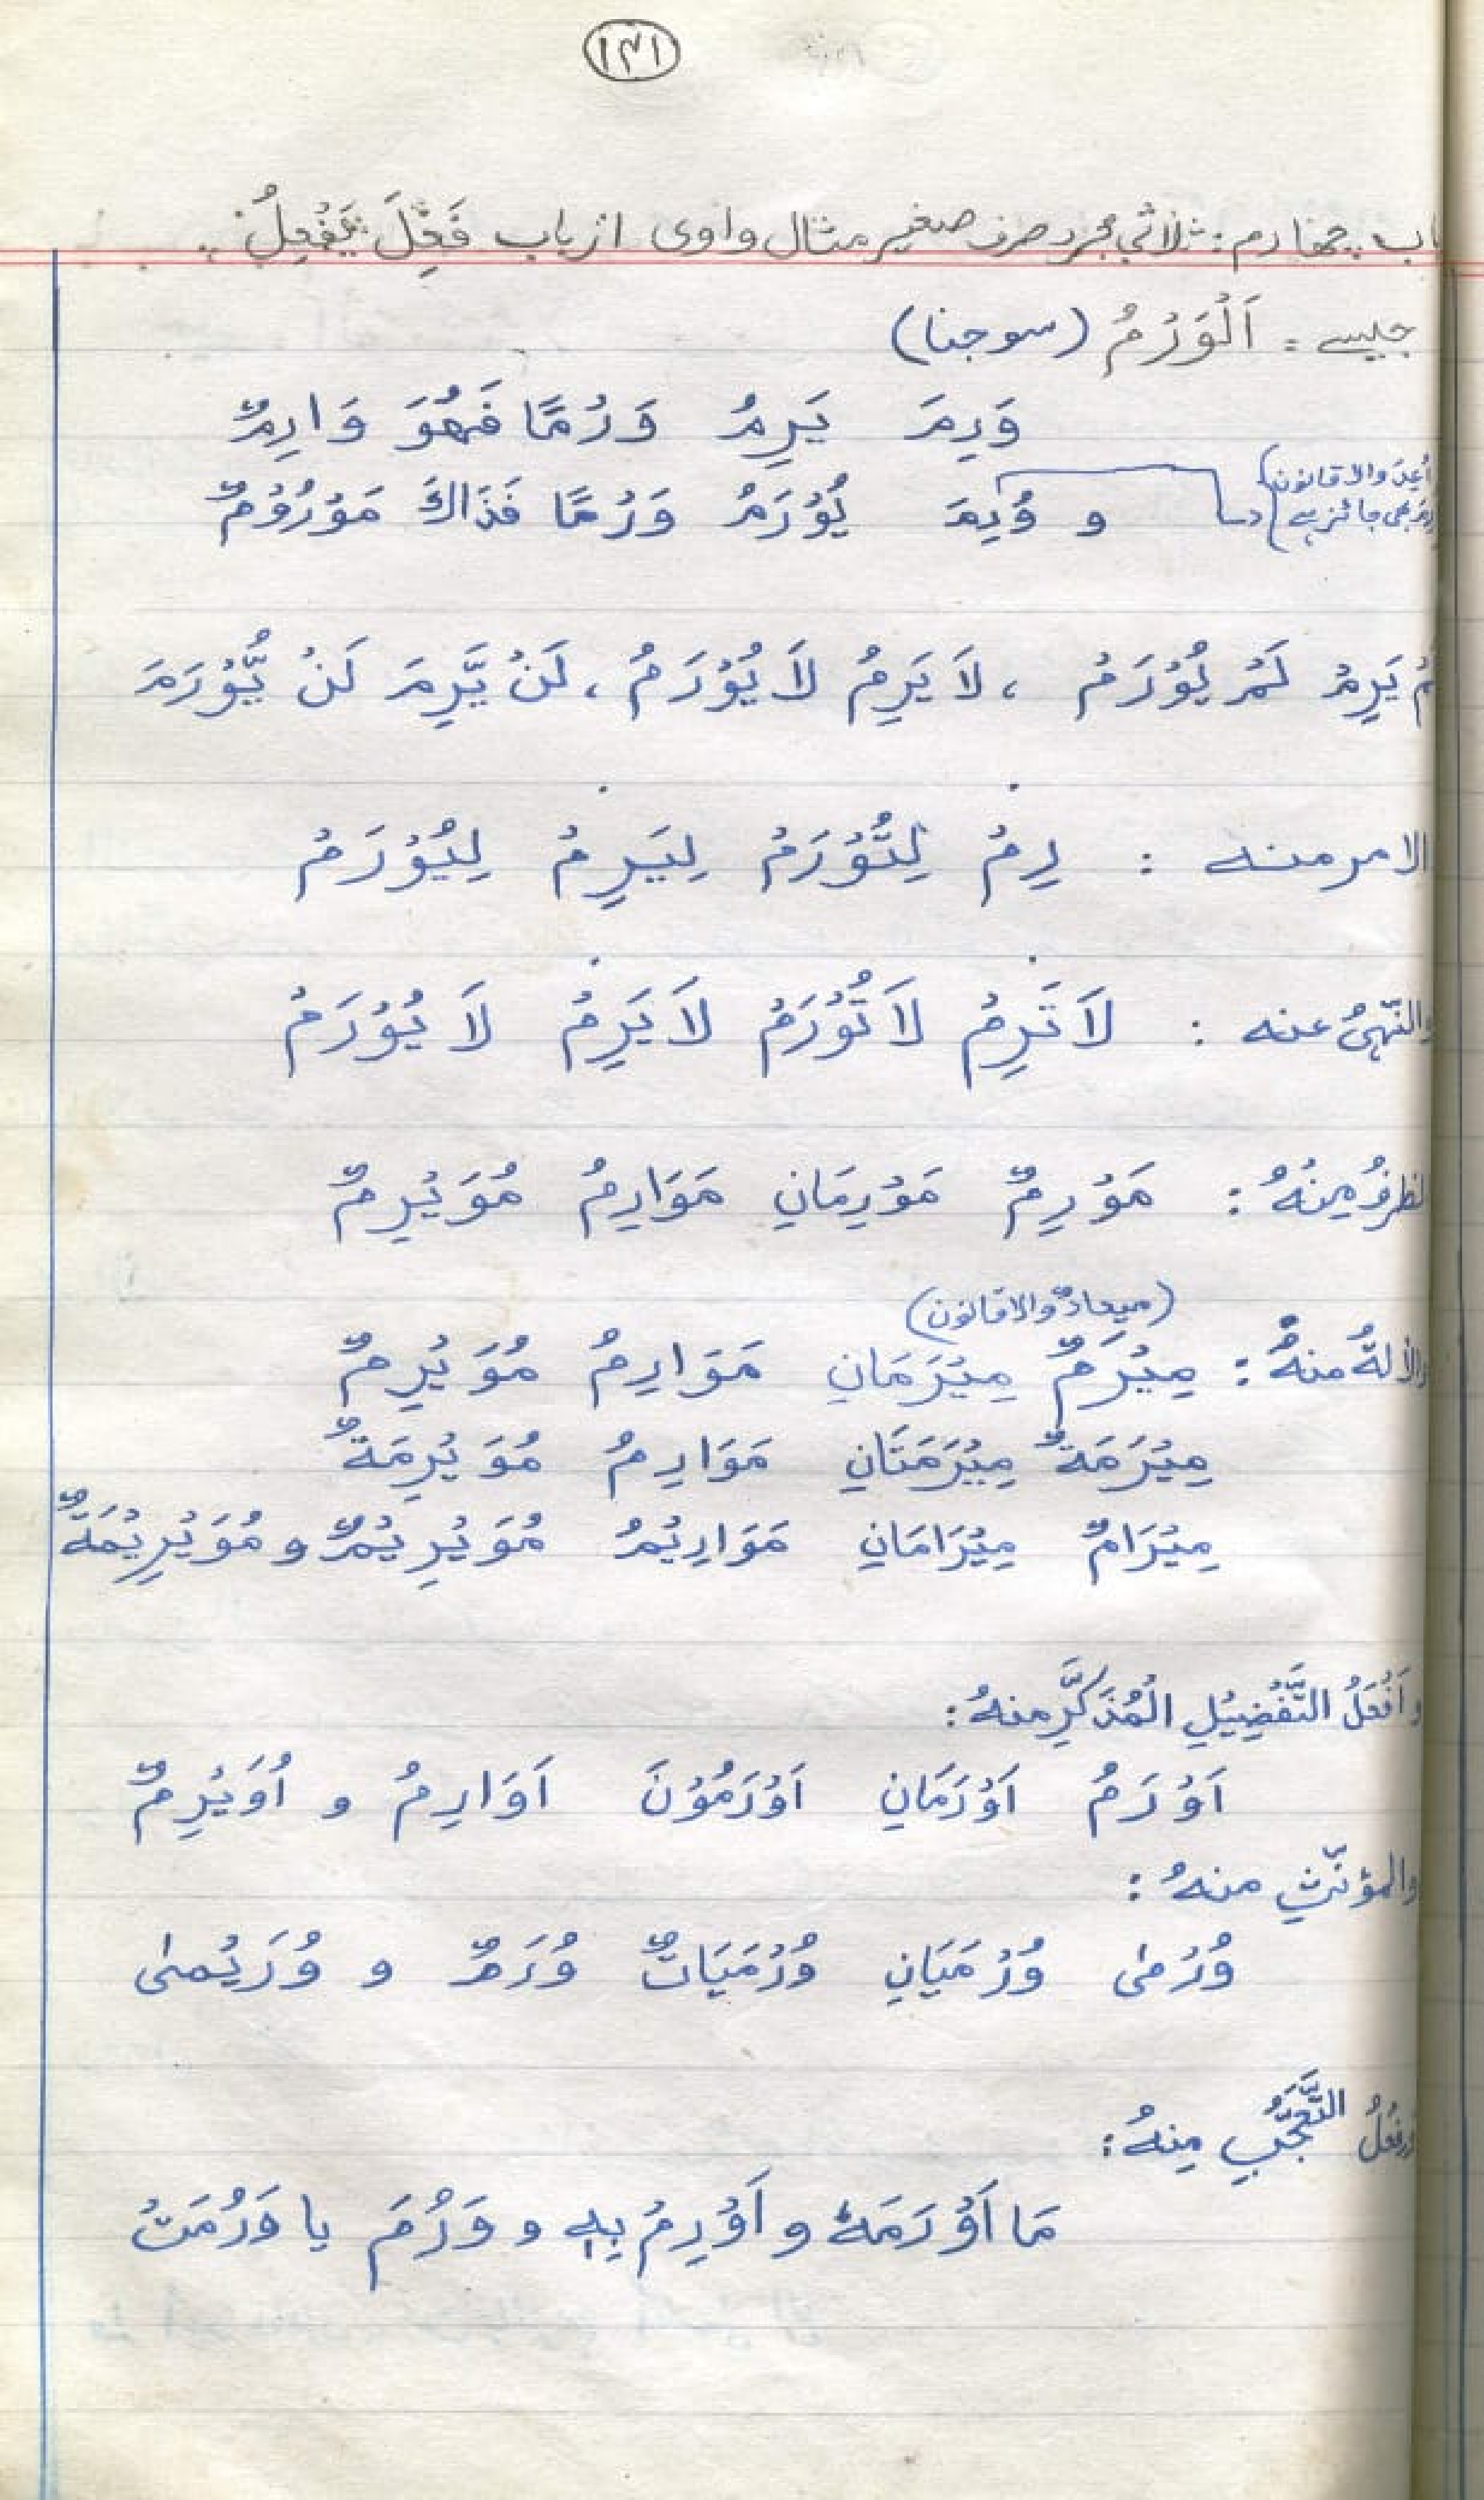 ۱۳۱
باب چهارم: ثلاثی مجرد صرف صغیر مثال واوی از باب فَعِلَ یَفْعِلُ
جیسے = اَلْوَرْمُ (سوجنا)
وَرِمَ یَرِمُ وَرْمًا فَهُوَ وَارِمٌ
و وُرِمَ یُوْرَمُ وَرْمًا فَذَاكَ مَوْرُوْمٌ
اُعِدَ والا قانون
بھی جائز ہے
لَمْ یَرِمْ لَمْ یُوْرَمْ ، لَا یَرِمُ لَا یُوْرَمُ ، لَنْ یَّرِمَ لَنْ یُّوْرَمَ
الامر منه : رِمْ لِتُوْرَمْ لِیَرِمْ لِیُوْرَمْ
والنّهیُ عنه : لَا تَرِمْ لَا تُوْرَمْ لَا یَرِمْ لَا یُوْرَمْ
الظرفُ مِنْهُ : مَوْرِمٌ مَوْرِمَانِ مَوَارِمُ مُوَیْرِمٌ
(میعادٌ والا قانون)
والاٰلةُ منهُ : مِیْرَمٌ مِیْرَمَانِ مَوَارِمُ مُوَیْرِمٌ
مِیْرَمَةٌ مِیْرَمَتَانِ مَوَارِمُ مُوَیْرِمَةٌ
مِیْرَامٌ مِیْرَامَانِ مَوَارِیْمُ مُوَیْرِیْمٌ و مُوَیْرِیْمَةٌ
و اَفْعَلُ التَّفْضِیْلِ الْمُذَكَّرِ منهُ :
اَوْرَمُ اَوْرَمَانِ اَوْرَمُوْنَ اَوَارِمُ و اُوَیْرِمٌ
والمؤنّثِ منهُ :
وُرْمٰی وُرْمَیَانِ وُرْمَیَاتٌ وُرَمٌ و وُرَیْمٰی
و فعلُ التَّعَجُّبِ مِنهُ :
مَا اَوْرَمَهٗ و اَوْرِمْ بِهٖ و وَرُمَ یا وَرُمَتْ